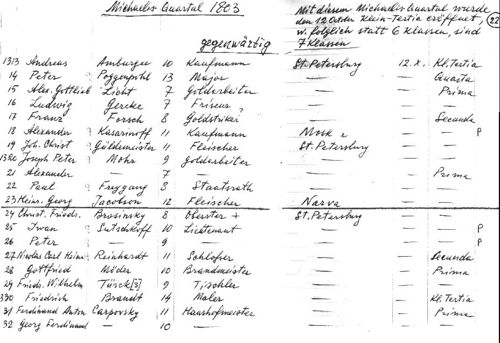 Michaelis Quartal 1803
Mit diesem Michaelis Quartal wurde
den 12. Octbr Klein-Tertia eröffnet,
w. folglich statt 6 Klassen, sind
7 Klassen
22
gegenwärtig
1313 Andreas Amburger 10 Kaufmann St. Petersburg 12. X. Kl. Tertia
14 Peter Poggenpohl 13 Major — — Quarta
15 Alex. Gottlieb Licht 7 Goldarbeiter — — Prima
16 Ludwig Gercke 7 Friseur? — —
17 Franz Forsch 8 — — Secunda
18 Alexander Kasarinoff 11 Kaufmann — P
19 Joh. Christ Güldmeister 11 Fleischer St. Petersburg —
1320 Joseph Peter Mohr 9 Goldarbeiter — —
21 Alexander — 7 — — — Prima
22 Paul Freygang 8 Staatsrath — —
23 Heinr. Georg Jacobson 12 Fleischer Narva —
24 Christ. Friedr. Brosinsky 8 Oberster + St. Petersburg —
25 Iwan Sutschkoff 10 Lieutenant — — P
26 Peter — 9 — — — P
27 Nicolas Carl Heinr. Reinhardt 11 Schlosser — — Secunda
28 Gottfried Möder 10 Brandmeister — — Prima
29 Friedr. Wilhelm Türck[s] 9 Tischler — —
330 Friedrich Brandt 14 Maler — — Kl. Tertia
31 Ferdinand Anton Carpovsky 11 Haushofmeister — — Prima
32 Georg Ferdinand — 10 — — —